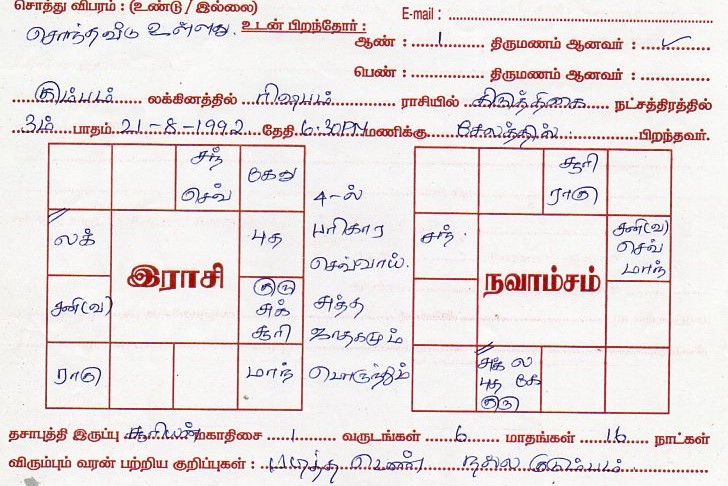 சொத்து விபரம் : (உண்டு / இல்லை) E-mail :
சொந்தவீடு உள்ளது. உடன் பிறந்தோர் :
ஆண் : 1 திருமணம் ஆனவர் : ✓
பெண் : திருமணம் ஆனவர் :
கும்பம் லக்கினத்தில் ரிஷபம் ராசியில் கிருத்திகை நட்சத்திரத்தில்
3ம் பாதம் 21-8-1992 தேதி 6:30PM மணிக்கு சேலத்தில் பிறந்தவர்.
சந்
செவ்
கேது
லக்
புத
இராசி
சனி(வ)
குரு
சுக்
சூரி
ராகு
மாந்
4-ல்
பரிகார
செவ்வாய்.
சுத்த
ஜாதகமும்
பொருந்தும்
சூரி
ராகு
சந்
சனி(வ)
செவ்
மாந்
நவாம்சம்
சுக் ல
புத கே
குரு
தசாபுத்தி இருப்பு சூரியன் மகாதிசை 1 வருடங்கள் 6 மாதங்கள் 16 நாட்கள்
விரும்பும் வரன் பற்றிய குறிப்புகள் : படித்த பெண் நல்ல குடும்பம்